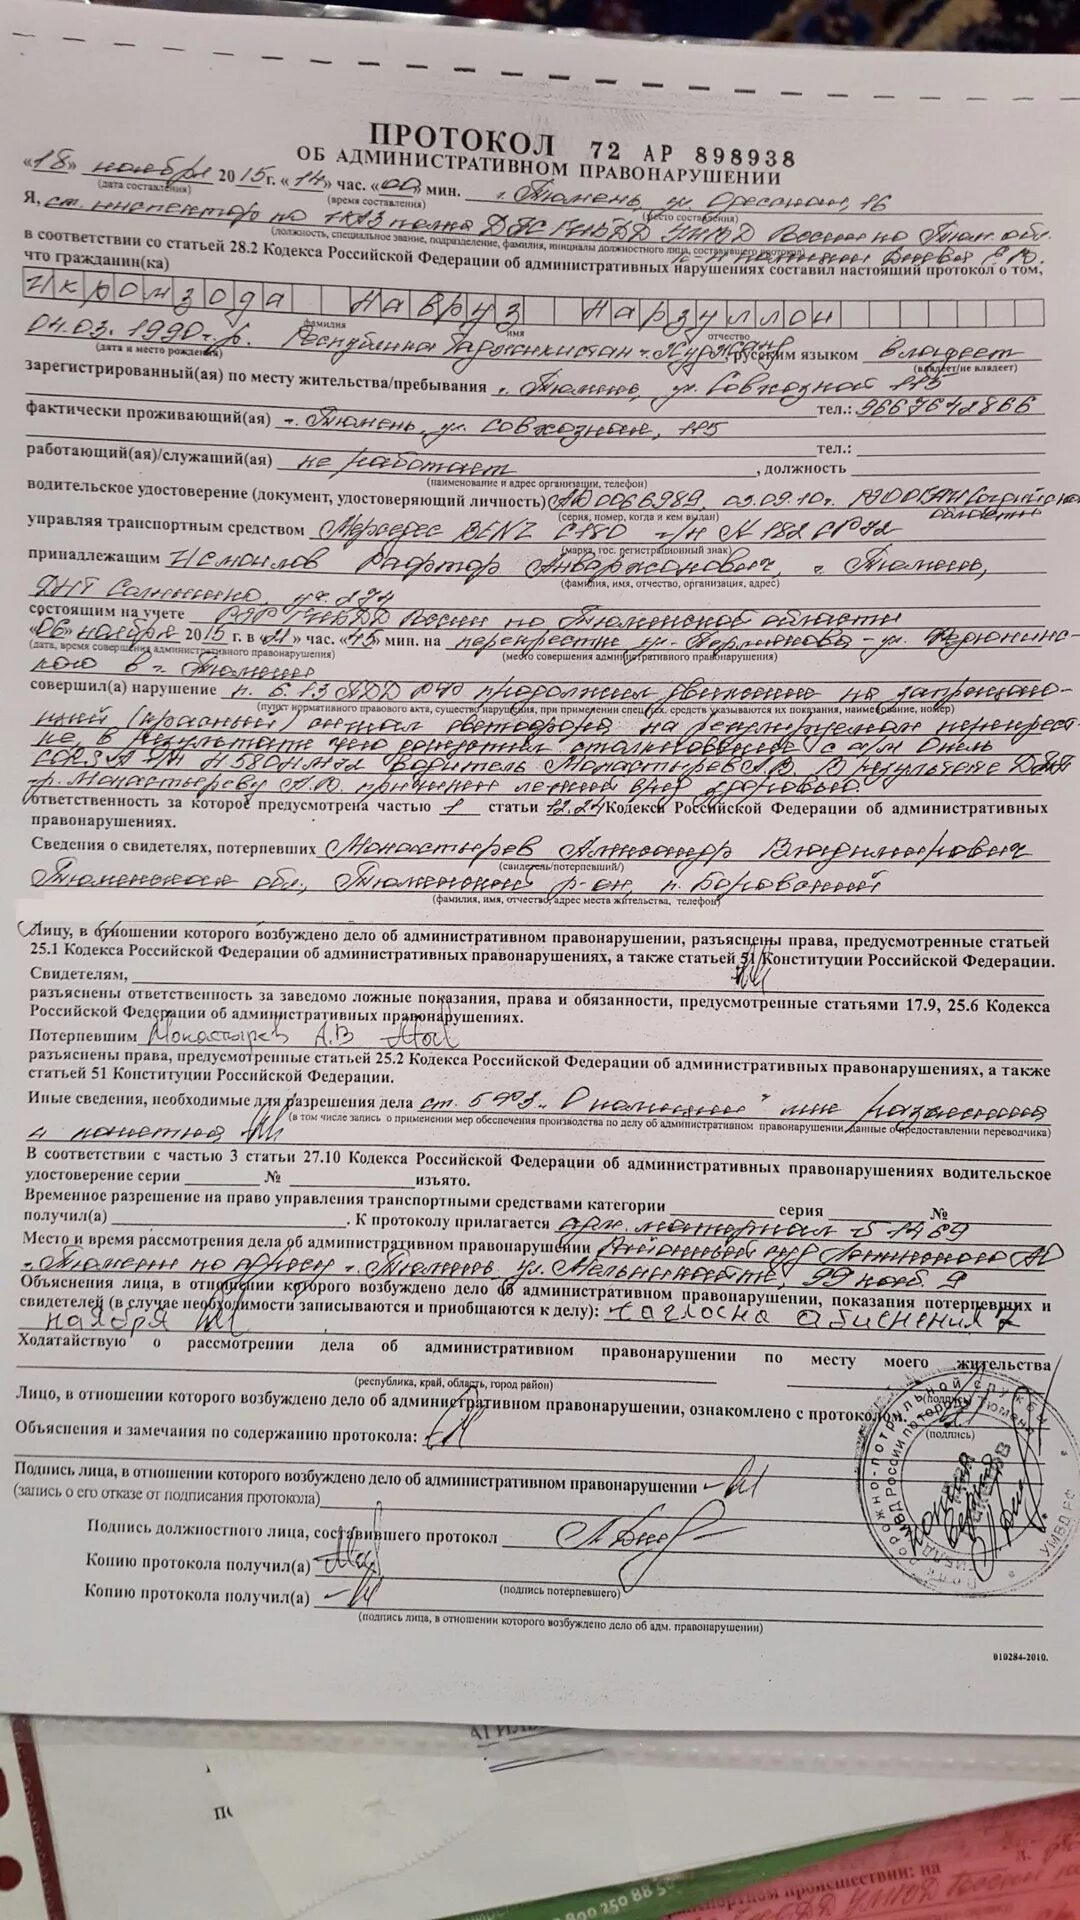 ПРОТОКОЛ 72 АР 898938
ОБ АДМИНИСТРАТИВНОМ ПРАВОНАРУШЕНИИ
«18» ноября 2015 г. «14» час. «00» мин. г. Тюмень, ул. 16
(дата составления) (время составления) (место составления)
Я, ст. инспектор по ИАЗ полка ДПС ГИБДД УМВД России по Тюм. обл.
(должность, специальное звание, подразделение, фамилия, инициалы должностного лица, составившего протокол)
в соответствии со статьей 28.2 Кодекса Российской Федерации об административных нарушениях составил настоящий протокол о том,
что гражданин(ка)
Икромзода Навруз Нарзуллои
фамилия имя отчество
04.03.1990г.р. Республика Таджикистан г. русским языком владеет
(дата и место рождения) (владеет/не владеет)
зарегистрированный(ая) по месту жительства/пребывания г. Тюмень, ул. Совхозная
фактически проживающий(ая) г. Тюмень, ул. Совхозная, тел.:
работающий(ая)/служащий(ая) не работает тел.:
, должность
(наименование и адрес организации, телефон)
водительское удостоверение (документ, удостоверяющий личность) 0066989, 03.09.10г.
(серия, номер, когда и кем выдан) области
управляя транспортным средством Мерседес BENZ С180 г/н
(марка, гос. регистрационный знак)
принадлежащим Исмоилов Анваржонович, г. Тюмень,
(фамилия, имя, отчество, организация, адрес)
ДНТ
состоящим на учете ГИБДД России по Тюменской области
«06» ноября 2015 г. в «21» час. «45» мин. на перекрестке ул. Пермякова - ул.
(дата, время совершения административного правонарушения) (место совершения административного правонарушения)
в г. Тюмени
совершил(а) нарушение п. 6.13 ПДД РФ продолжил движение на запрещаю-
(пункт нормативного правового акта, существо нарушения, при применении спец. тех. средств указываются их показания, наименование, номер)
щий (красный) сигнал светофора на регулируемом перекрест-
ке в результате чего совершил столкновение с а/м Опель
г/н водитель Монастырев А.В. В результате ДТП
гр. Монастыреву А.В. причинен легкий вред здоровью.
ответственность за которое предусмотрена частью 1 статьи 12.24 Кодекса Российской Федерации об административных
правонарушениях.
Сведения о свидетелях, потерпевших Монастырев Александр Владимирович
(свидетель/потерпевший/)
Тюменская обл., Тюменский р-он, п. Боровский
(фамилия, имя, отчество, адрес места жительства, телефон)
Лицу, в отношении которого возбуждено дело об административном правонарушении, разъяснены права, предусмотренные статьей
25.1 Кодекса Российской Федерации об административных правонарушениях, а также статьей 51 Конституции Российской Федерации.
Свидетелям,
разъяснены ответственность за заведомо ложные показания, права и обязанности, предусмотренные статьями 17.9, 25.6 Кодекса
Российской Федерации об административных правонарушениях.
Потерпевшим Монастырев А.В
разъяснены права, предусмотренные статьей 25.2 Кодекса Российской Федерации об административных правонарушениях, а также
статьей 51 Конституции Российской Федерации.
Иные сведения, необходимые для разрешения дела ст. 5 ФЗ "О полиции" мне разъяснена
(в том числе запись о применении мер обеспечения производства по делу об административном правонарушении, данные о предоставлении переводчика)
и понятна
В соответствии с частью 3 статьи 27.10 Кодекса Российской Федерации об административных правонарушениях водительское
удостоверение серии № изъято.
Временное разрешение на право управления транспортными средствами категории серия №
получил(а) . К протоколу прилагается адм. материал
Место и время рассмотрения дела об административном правонарушении Районный суд Ленинского АО
г. Тюмени по адресу г. Тюмень ул. Мельникайте
Объяснения лица, в отношении которого возбуждено дело об административном правонарушении, показания потерпевших и
свидетелей (в случае необходимости записываются и приобщаются к делу):
ноября
Ходатайствую о рассмотрении дела об административном правонарушении по месту моего жительства
(республика, край, область, город район) (подпись)
Лицо, в отношении которого возбуждено дело об административном правонарушении, ознакомлено с протоколом.
(подпись)
Объяснения и замечания по содержанию протокола:
Подпись лица, в отношении которого возбуждено дело об административном правонарушении
(запись о его отказе от подписания протокола)
Подпись должностного лица, составившего протокол
Копию протокола получил(а)
(подпись потерпевшего)
Копию протокола получил(а)
(подпись лица, в отношении которого возбуждено дело об адм. правонарушении)
010284-2010.
800 250 88 50
транспортном происшествии: на